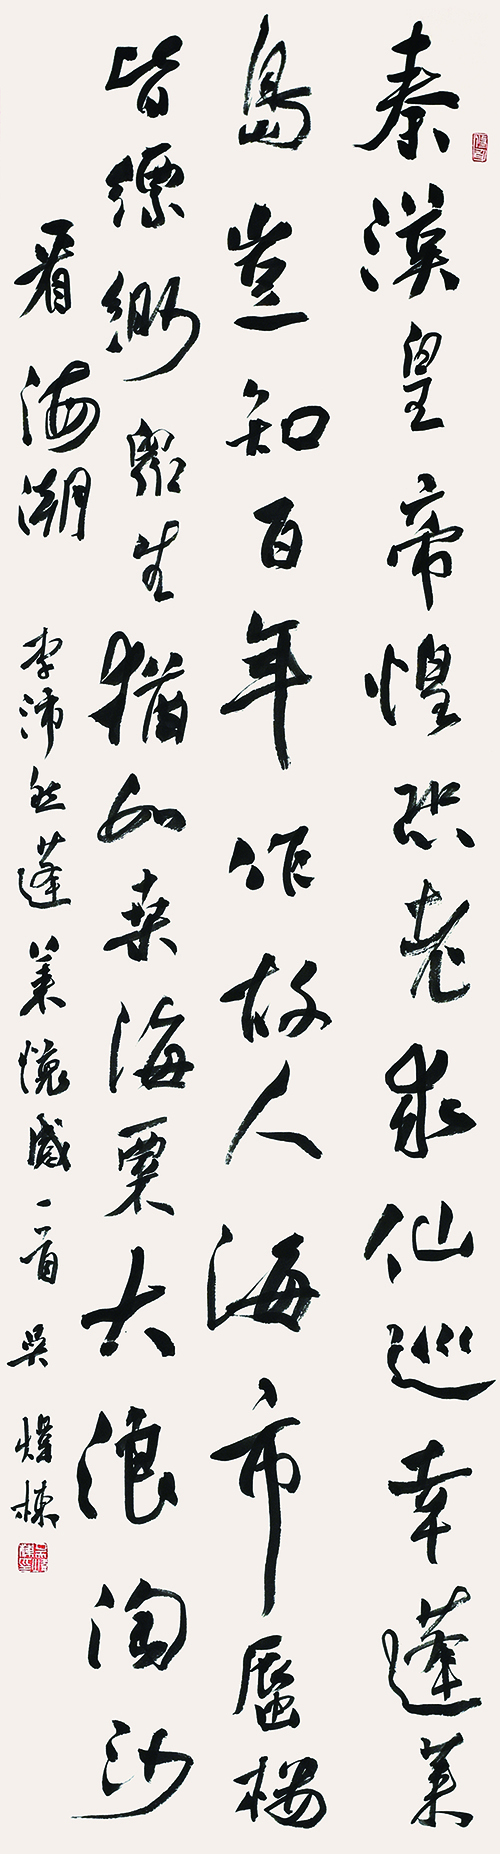 秦漢皇帝惶恐老求仙巡幸蓬莱
島豈知百年作故人海市蜃楼
皆縹緲眾生猶如桑海粟大浪淘沙
看海潮 李沛然蓬莱懷感一首 吴 棟